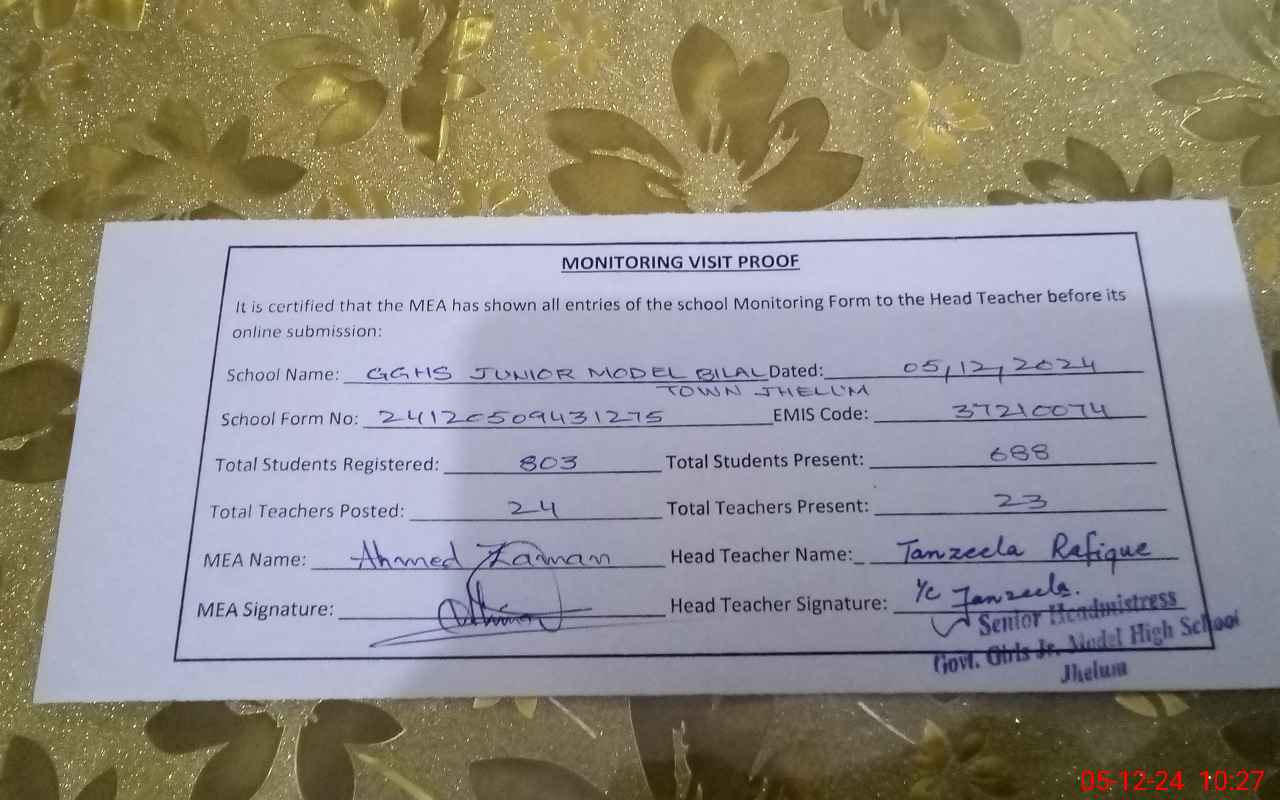 MONITORING VISIT PROOF
It is certified that the MEA has shown all entries of the school Monitoring Form to the Head Teacher before its
online submission:
School Name: GGHS JUNIOR MODEL BILAL Dated: 05,12,2024
TOWN JHELUM
School Form No: 24120509431275 EMIS Code: 37210074
Total Students Registered: 803 Total Students Present: 688
Total Teachers Posted: 24 Total Teachers Present: 23
MEA Name: Ahmed Zaman Head Teacher Name: Tanzeela Rafique
MEA Signature: Head Teacher Signature: I/C Tanzeela.
Senior Headmistress
Govt. Girls Jr. Model High School
Jhelum
05-12-24 10:27